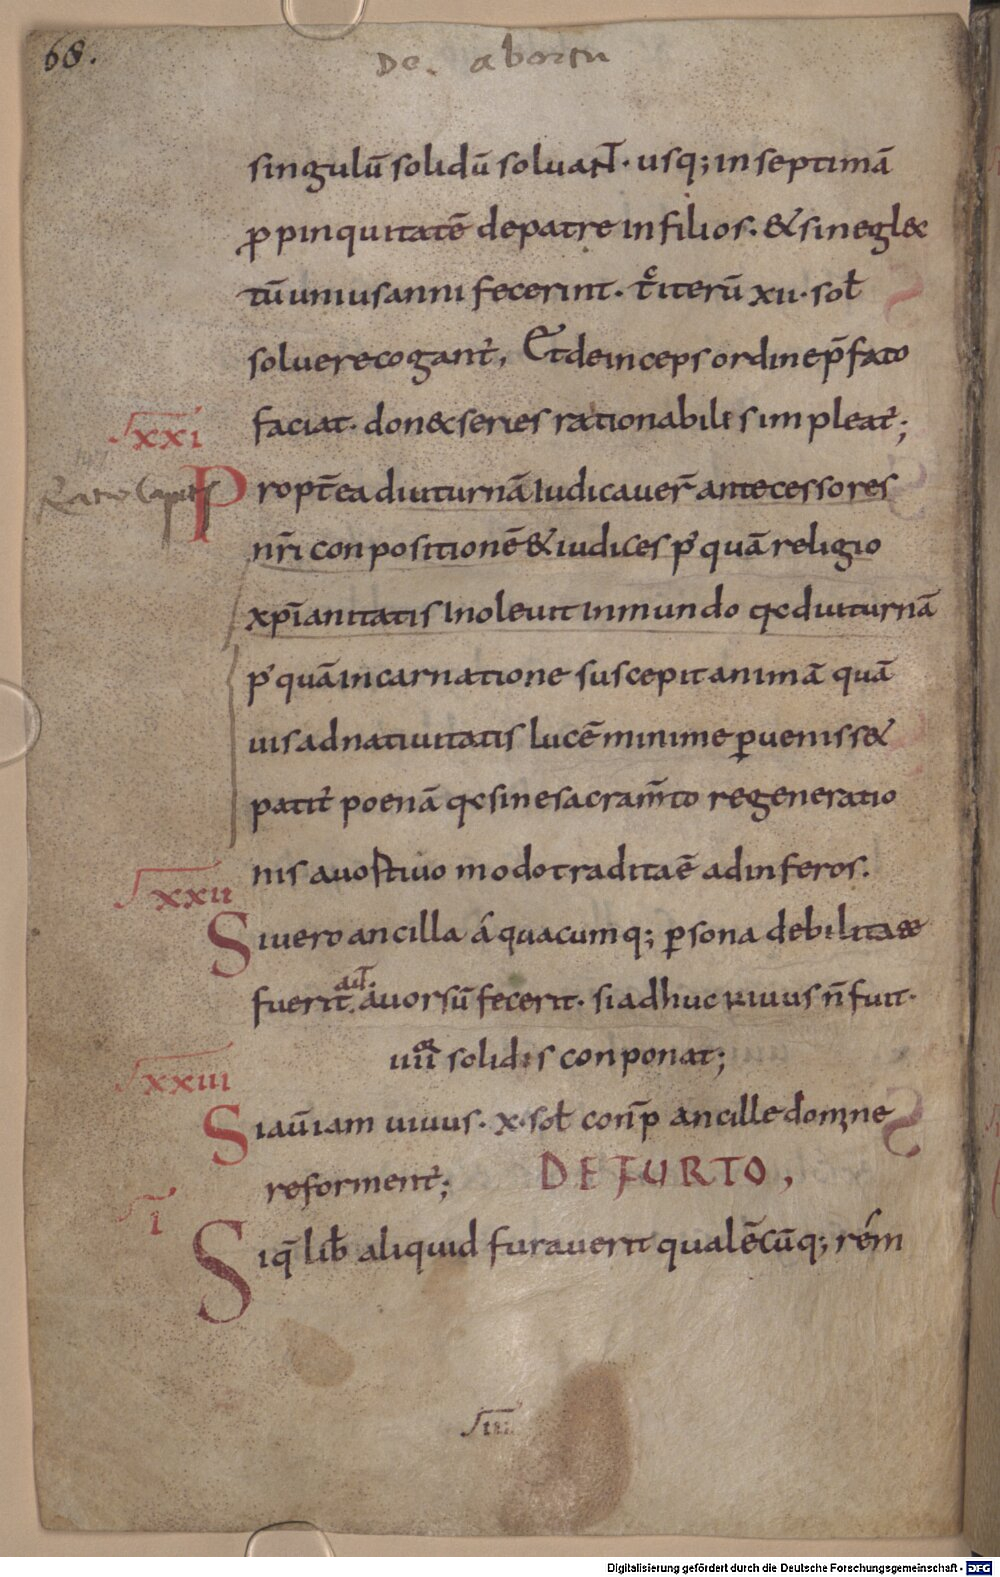 68.
De. abortu
singulū solidū soluaNT· usq; in septimā
ꝓpinquitatē de patre in filios· & si negl&c
tū unius anni fecerint· tc̄ iterū xii· sol̄
soluere cogant̄, Et deinceps ordine p̄fato
faciat· don&c series rationabilis impleat̄;
XXI
Propt̄ea diuturnā iudicauer̄ antecessores
nr̄i conpositionē & iudices p' quā religio
xp̄ianitatis inoleuit in mundo qc diuturnā
p' quā incarnatione suscepit animā quā
uis ad natiuitatis lucē minime ꝑuenis&
patit̄ poenā qc sine sacram̄to regeneratio
nis auorstiuo modo tradita ē ad inferos.
XXII
Si uero ancilla á quacumq; ꝑsona debilitata
fuerit aūt auorsū fecerit· si adhuc uiuus n̄ fuit·
iiii solidis conponat;
XXIII
Si aū iam uiuus· x· sol̄ con̄p ancille domne
reforment̄; DE FURTO,
I
Si q̄ lib̄ aliquid furauerit qualēcūq; rém
Digitalisierung gefördert durch die Deutsche Forschungsgemeinschaft - DFG